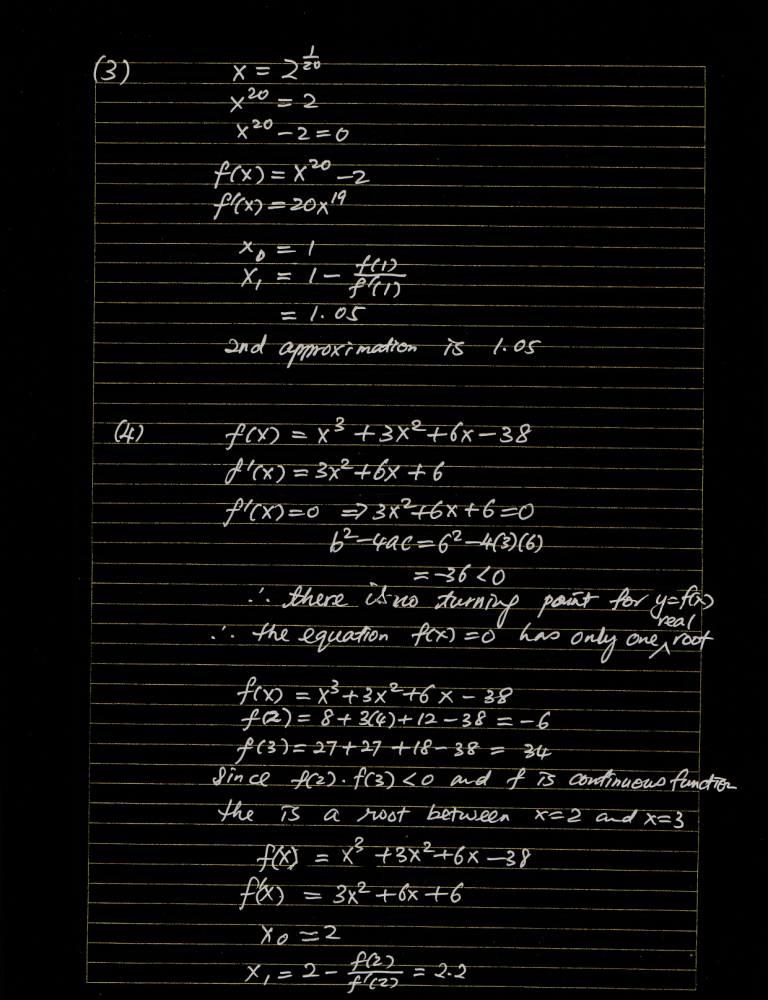 (3) x = 2^{1/20}
x^{20} = 2
x^{20} - 2 = 0
f(x) = x^{20} - 2
f'(x) = 20x^{19}
x_0 = 1
x_1 = 1 - \frac{f(1)}{f'(1)}
= 1.05
2nd approximation is 1.05
(4) f(x) = x^3 + 3x^2 + 6x - 38
f'(x) = 3x^2 + 6x + 6
f'(x) = 0 ⇒ 3x^2 + 6x + 6 = 0
b^2 - 4ac = 6^2 - 4(3)(6)
= -36 < 0
∴ there is no turning point for y = f(x)
∴ the equation f(x) = 0 has only one real root
f(x) = x^3 + 3x^2 + 6x - 38
f(2) = 8 + 3(4) + 12 - 38 = -6
f(3) = 27 + 27 + 18 - 38 = 34
Since f(2) . f(3) < 0 and f is continuous function
the is a root between x = 2 and x = 3
f(x) = x^3 + 3x^2 + 6x - 38
f'(x) = 3x^2 + 6x + 6
x_0 = 2
x_1 = 2 - \frac{f(2)}{f'(2)} = 2.2